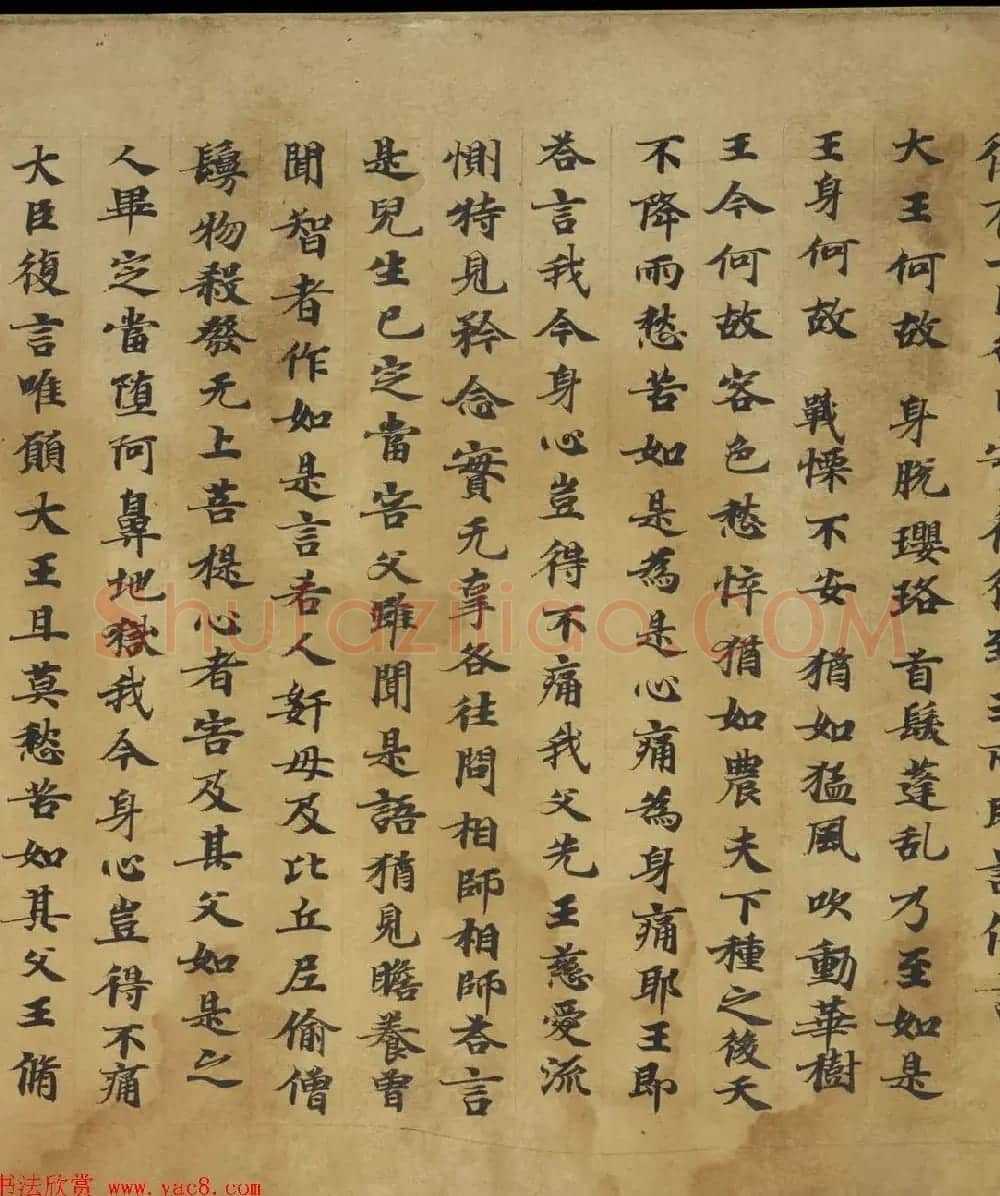 大王何故身脱瓔珞首髮蓬乱乃至如是
王身何故戰慄不安猶如猛風吹動華樹
王今何故容色愁悴猶如農夫下種之後天
不降雨愁苦如是為是心痛為身痛耶王即
荅言我今身心豈得不痛我父先王慈愛流
惻特見矜念實无辜各往問相師相師荅言
是兒生已定當害父雖聞是語猶見瞻養曾
聞智者作如是言若人姧母及比丘尼偷僧
鬘物殺發无上菩提心者害及其父如是之
人畢定當堕阿鼻地獄我今身心豈得不痛
大臣復言唯願大王且莫愁苦如其父王脩
Shufaziliao.COM
书法欣赏 www.yac8.com